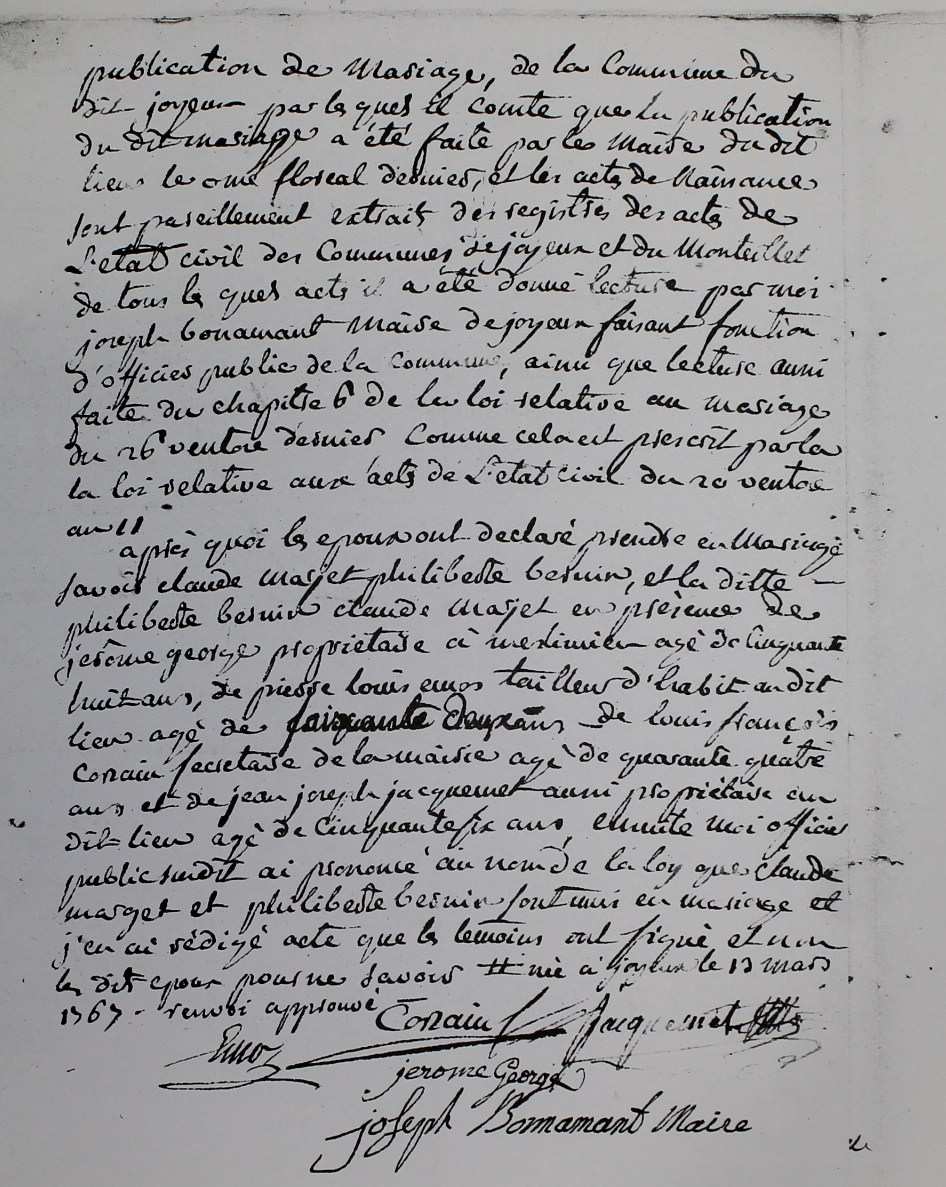 publication de Mariage, de la Commune du
dit joyeux par lesquels il comte que la publication
du dit mariage a été faite par les Maire du dit
lieu le onse floreal dernier, et les acts de Naisance
sont pareillement extrait des registres des acts de
L'etat civil des Communes de joyeux et du Montellier
de tous les quels acts il a été donné lecture par moi
joseph bonamant Maire de joyeux faisant fonction
d'officier public de la Commune, ainsi que lecture aussi
faite du chapitre 6 de la loi relative au mariage
du 26 ventose dernier Comme cela est prescrit par la
la loi relative aux acts de L'etat civil du 20 ventose
an 11
après quoi les epoux ont declaré prendre en Mariage
savoir claude marjet philiberte bernin, et la ditte
philiberte bernin claude Marjet en présence de
jerôme george propriétaire à meximieu agé de Cinquante
huit ans, de pierre louis emos tailleur d'habit au dit
lieu agé de soixante deux ans de louis françois
Corrain secretaire de la mairie agé de quarante quatre
ans et de jean joseph jacquemet aussi propriétaire au
dit lieu agé de Cinquante six ans, ensuite moi officier
public susdit ai prononcé au nom de la loy que claude
marget et philiberte bernin sont unis en mariage et
j'en ai rédigé acte que les temoins ont signé et non
les dit epoux pour ne savoir # née à joyeux le 13 mars
1767 - renvoi approuvé
Corrain Jacquemet
Emos
jerome George
joseph Bonnamant Maire